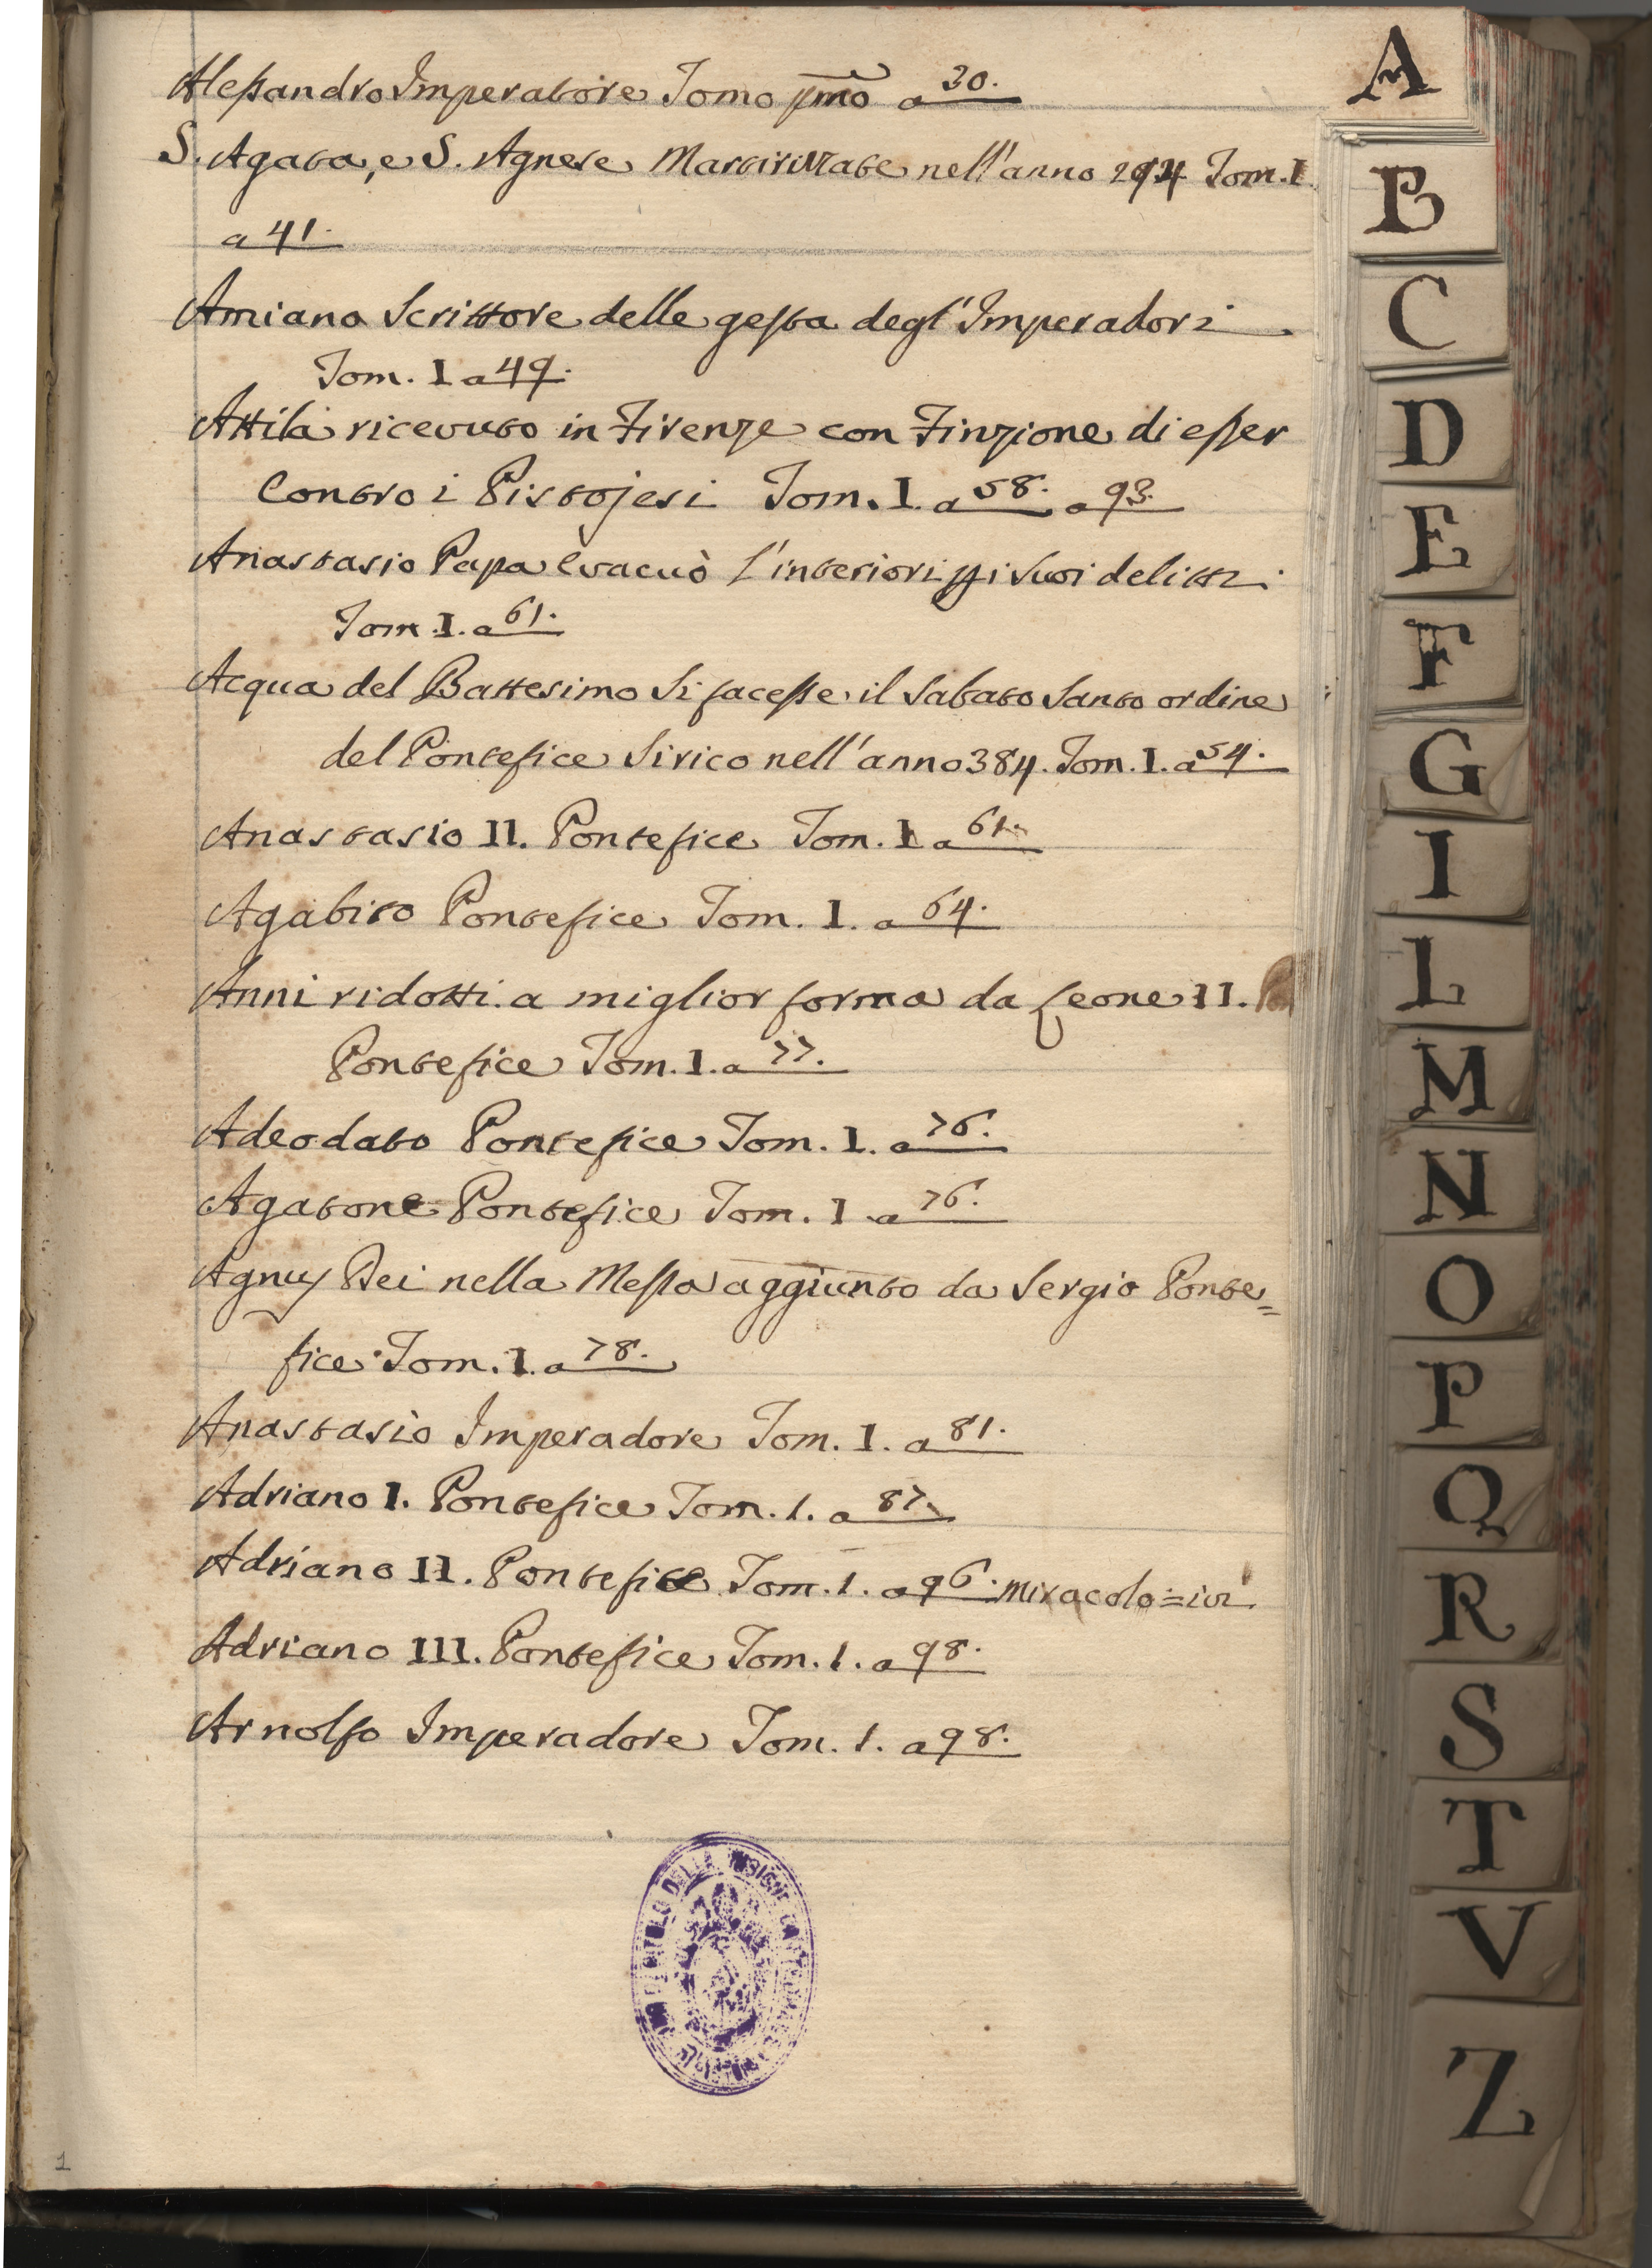 Alessandro Imperatore Tomo pmo a 30.
S. Agata, e S. Agnese Martirizzate nell'anno 294 Tom. I
a 41.
Amiano Scrittore delle gesta degl'Imperadori.
Tom. I a 49.
Attila ricevuto in Firenze con Finzione di esser
Contro i Pistojesi Tom. I. a 58. a 93.
Anastasio Papa evacuò l'interiori pi suoi delitti.
Tom. I. a 61.
Acqua del Battesimo si facesse il Sabato Santo ordine
del Pontefice Sirico nell'anno 384. Tom. I. a 54.
Anastasio II. Pontefice Tom. I a 61.
Agabito Pontefice Tom. I. a 64.
Anni ridotti a miglior forma da Leone II.
Pontefice Tom. I. a 77.
Adeodato Pontefice Tom. I. a 76.
Agatone Pontefice Tom. I a 76.
Agnus Dei nella Messa aggiunto da Sergio Ponte=
fice Tom. I. a 78.
Anastasio Imperadore Tom. I. a 81.
Adriano I. Pontefice Tom. I. a 87.
Adriano II. Pontefice Tom. I. a 96. miracolo = ivi
Adriano III. Pontefice Tom. I. a 98.
Arnolfo Imperadore Tom. I. a 98.
1
A
B
C
D
E
F
G
I
L
M
N
O
P
Q
R
S
T
V
Z